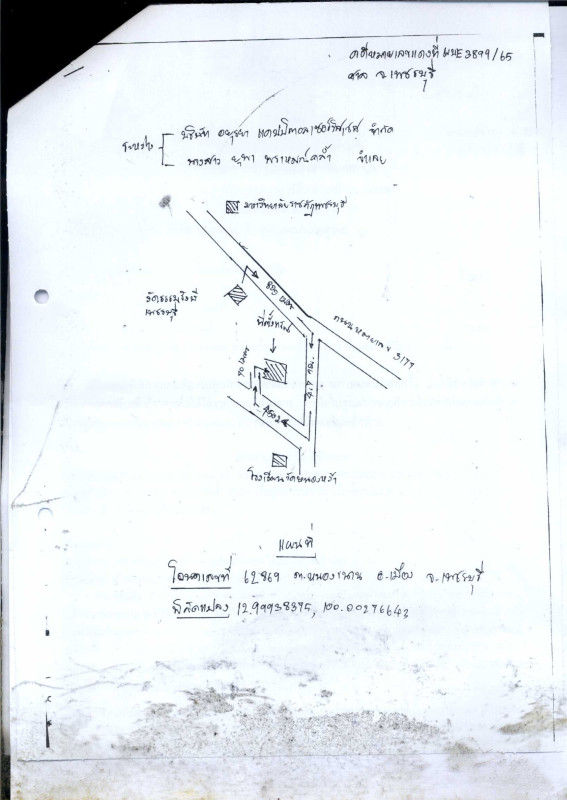 คดีหมายเลขแดงที่ ผบE3899/65
ศาล จ.เพชรบุรี
ระหว่าง
บริษัท อยุธยา แคปปิตอล เซอร์วิสเซส จำกัด
นางสาว ยุพา พราหมณ์คล้ำ จำเลย
มหาวิทยาลัยราชภัฏเพชรบุรี
วัดธรรมรังษี
เพชรบุรี
850 เมตร
ที่ตั้งทรัพย์
ถนนหมายเลข 3177
90 เมตร
4.7 กม.
โรงเรียนวัดหนองหว้า
แผนที่
โฉนดเลขที่ 62869 ต.หนองขนาน อ.เมือง จ.เพชรบุรี
พิกัดแปลง 12.99938395, 100.00276643